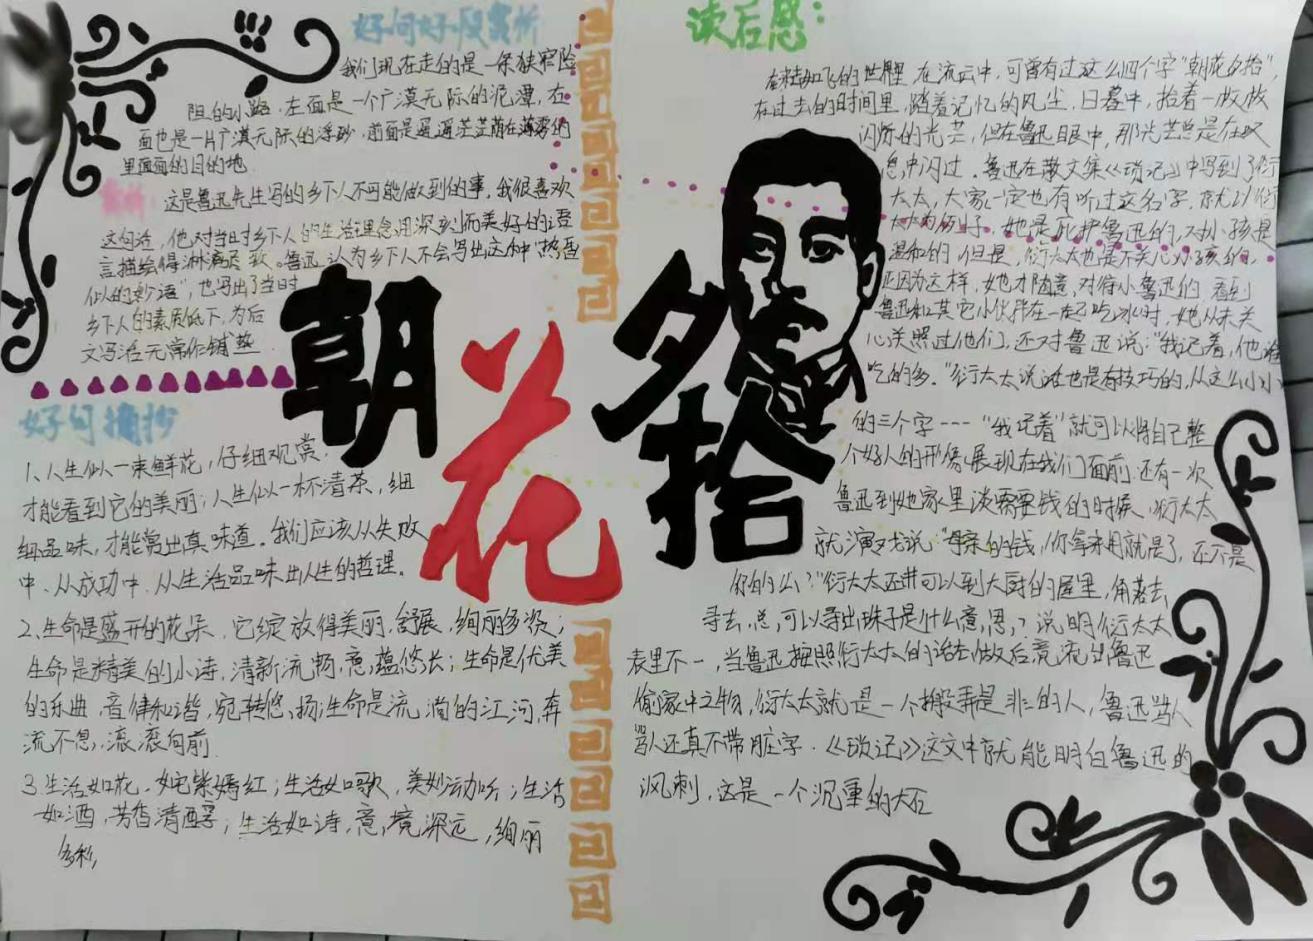 好句好段赏析
我们现在走的是一条狭窄险
阻的小路，左面是一个广漠无际的泥潭，右
面也是一片广漠无际的浮砂，前面是遥遥茫茫荫在薄雾的
里面的目的地
赏析：这是鲁迅先生写的乡下人不可能做到的事，我很喜欢
这句话，他对当时乡下人的生活理念用深刻而美好的语
言描绘得淋漓尽致。鲁迅认为乡下人不会写出这种"热昏
似的妙语"，也写出了当时
乡下人的素质低下，为后
文写活无常作铺垫
好句摘抄
1、人生似一束鲜花，仔细观赏，
才能看到它的美丽；人生似一杯清茶，细
细品味，才能赏出真味道。我们应该从失败
中、从成功中、从生活品味出人生的哲理。
2、生命是盛开的花朵，它绽放得美丽，舒展，绚丽多资；
生命是精美的小诗，清新流畅，意蕴悠长；生命是优美
的乐曲，音律和谐，宛转悠扬；生命是流淌的江河，奔
流不息，滚滚向前
3、生活如花，姹紫嫣红；生活如歌，美妙动听；生活
如酒，芳香清醇；生活如诗，意境深远，绚丽
多彩
朝花夕拾
读后感：
在桂如飞的世界里，在流云中，可曾有过这么四个字"朝花夕拾"，
在过去的时间里，随着记忆的风尘，日暮中，拾着一枚枚
闪烁的光芒，但在鲁迅眼中，那光芒总是在叹
息中闪过。鲁迅在散文集《琐记》中写到了衍
太太，大家一定也有听过这名字，就以衍
太太为例子，她是庇护鲁迅的，对小孩是
温和的，但是，衍太太也是不关心小孩的，
正因为这样，她才随意对待小鲁迅的，看到
鲁迅和其它小伙伴在一起吃冰时，她从未关
心关照过他们，还对鲁迅说："我记着，他谁
吃的多。"衍太太说谁也是有技巧的，从这么小小
的三个字----"我记着"就可以将自己整
个好人的形象展现在我们面前，还有一次
鲁迅到她家里谈需要钱的时候，衍太太
就演戏说"母亲的钱，你拿来用就是了，还不是
你的么？"衍太太还讲可以到大厨的屋里，角落去
寻去，总可以寻出珠子是什么意思？说明衍太太
表里不一，当鲁迅按照衍太太的话去做后竟流出鲁迅
偷家中之物，衍太太就是一个搬弄是非的人，鲁迅骂人
骂人还真不带脏字。《琐记》这文中就能明白鲁迅的
讽刺，这是一个沉重的大石